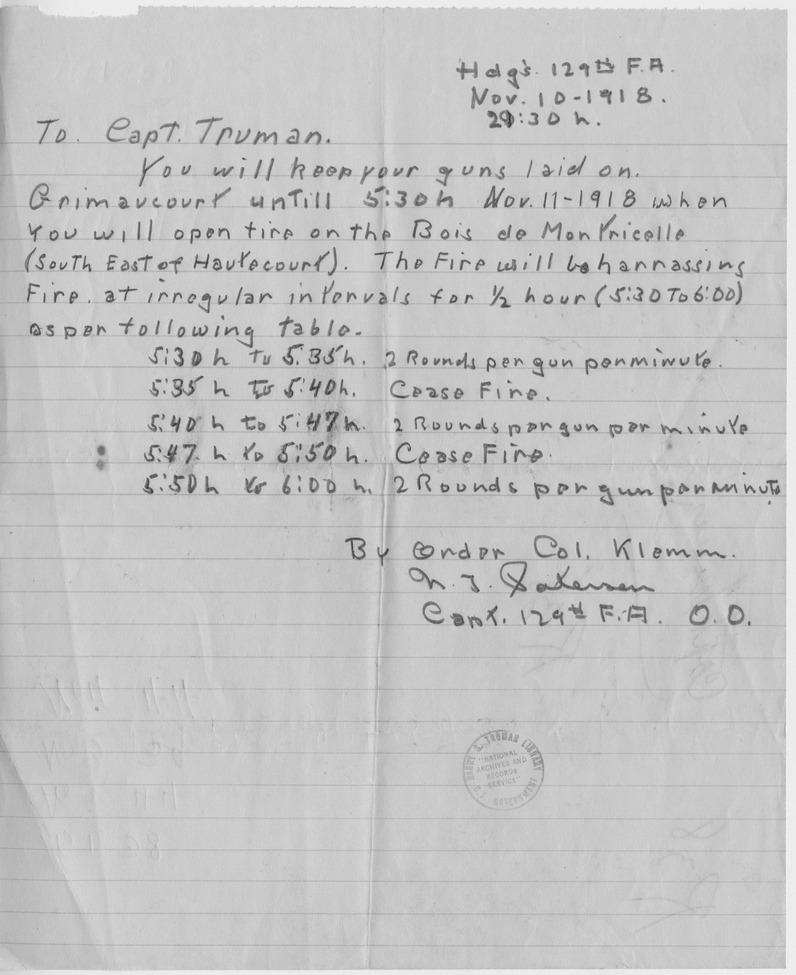 Hdqs. 129th F.A.
Nov. 10-1918.
:30 h.
To. Capt. Truman.
You will keep your guns laid on.
Grimaucourt untill 5:30h Nov. 11-1918 when
you will open fire on the Bois de Montricelle
(South East of Hautecourt). The Fire will be harrassing
Fire. at irregular intervals for ½ hour (5:30 To 6:00)
as per following table.
5:30 h to 5:35 h. 2 Rounds per gun per minute.
5:35 h to 5:40 h. Cease Fire.
5:40 h to 5:47 h. 2 Rounds per gun per minute
5:47. h to 5:50 h. Cease Fire.
5:50 h to 6:00 h. 2 Rounds per gun per minute
By order Col. Klemm.
Capt. 129th F.A. O.D.
HARRY S. TRUMAN LIBRARY
"NATIONAL
ARCHIVES AND
RECORDS
SERVICE"
U.S. GOVERNMENT